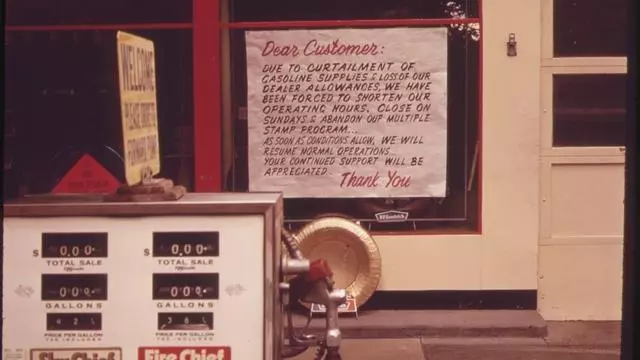 Dear Customer:
DUE TO CURTAILMENT OF
GASOLINE SUPPLIES & LOSS OF OUR
DEALER ALLOWANCES, WE HAVE
BEEN FORCED TO SHORTEN OUR
OPERATING HOURS, CLOSE ON
SUNDAYS & ABANDON OUR MULTIPLE
STAMP PROGRAM...
AS SOON AS CONDITIONS ALLOW, WE WILL
RESUME NORMAL OPERATIONS.
YOUR CONTINUED SUPPORT WILL BE
APPRECIATED.
Thank You
WELCOME
PLEASE
FORWARD
$ 0.00
TOTAL SALE
GALLONS
PRICE PER GALLON
TAX INCLUDED
Sky Chief
$ 0.00
TOTAL SALE
GALLONS
PRICE PER GALLON
TAX INCLUDED
Fire Chief